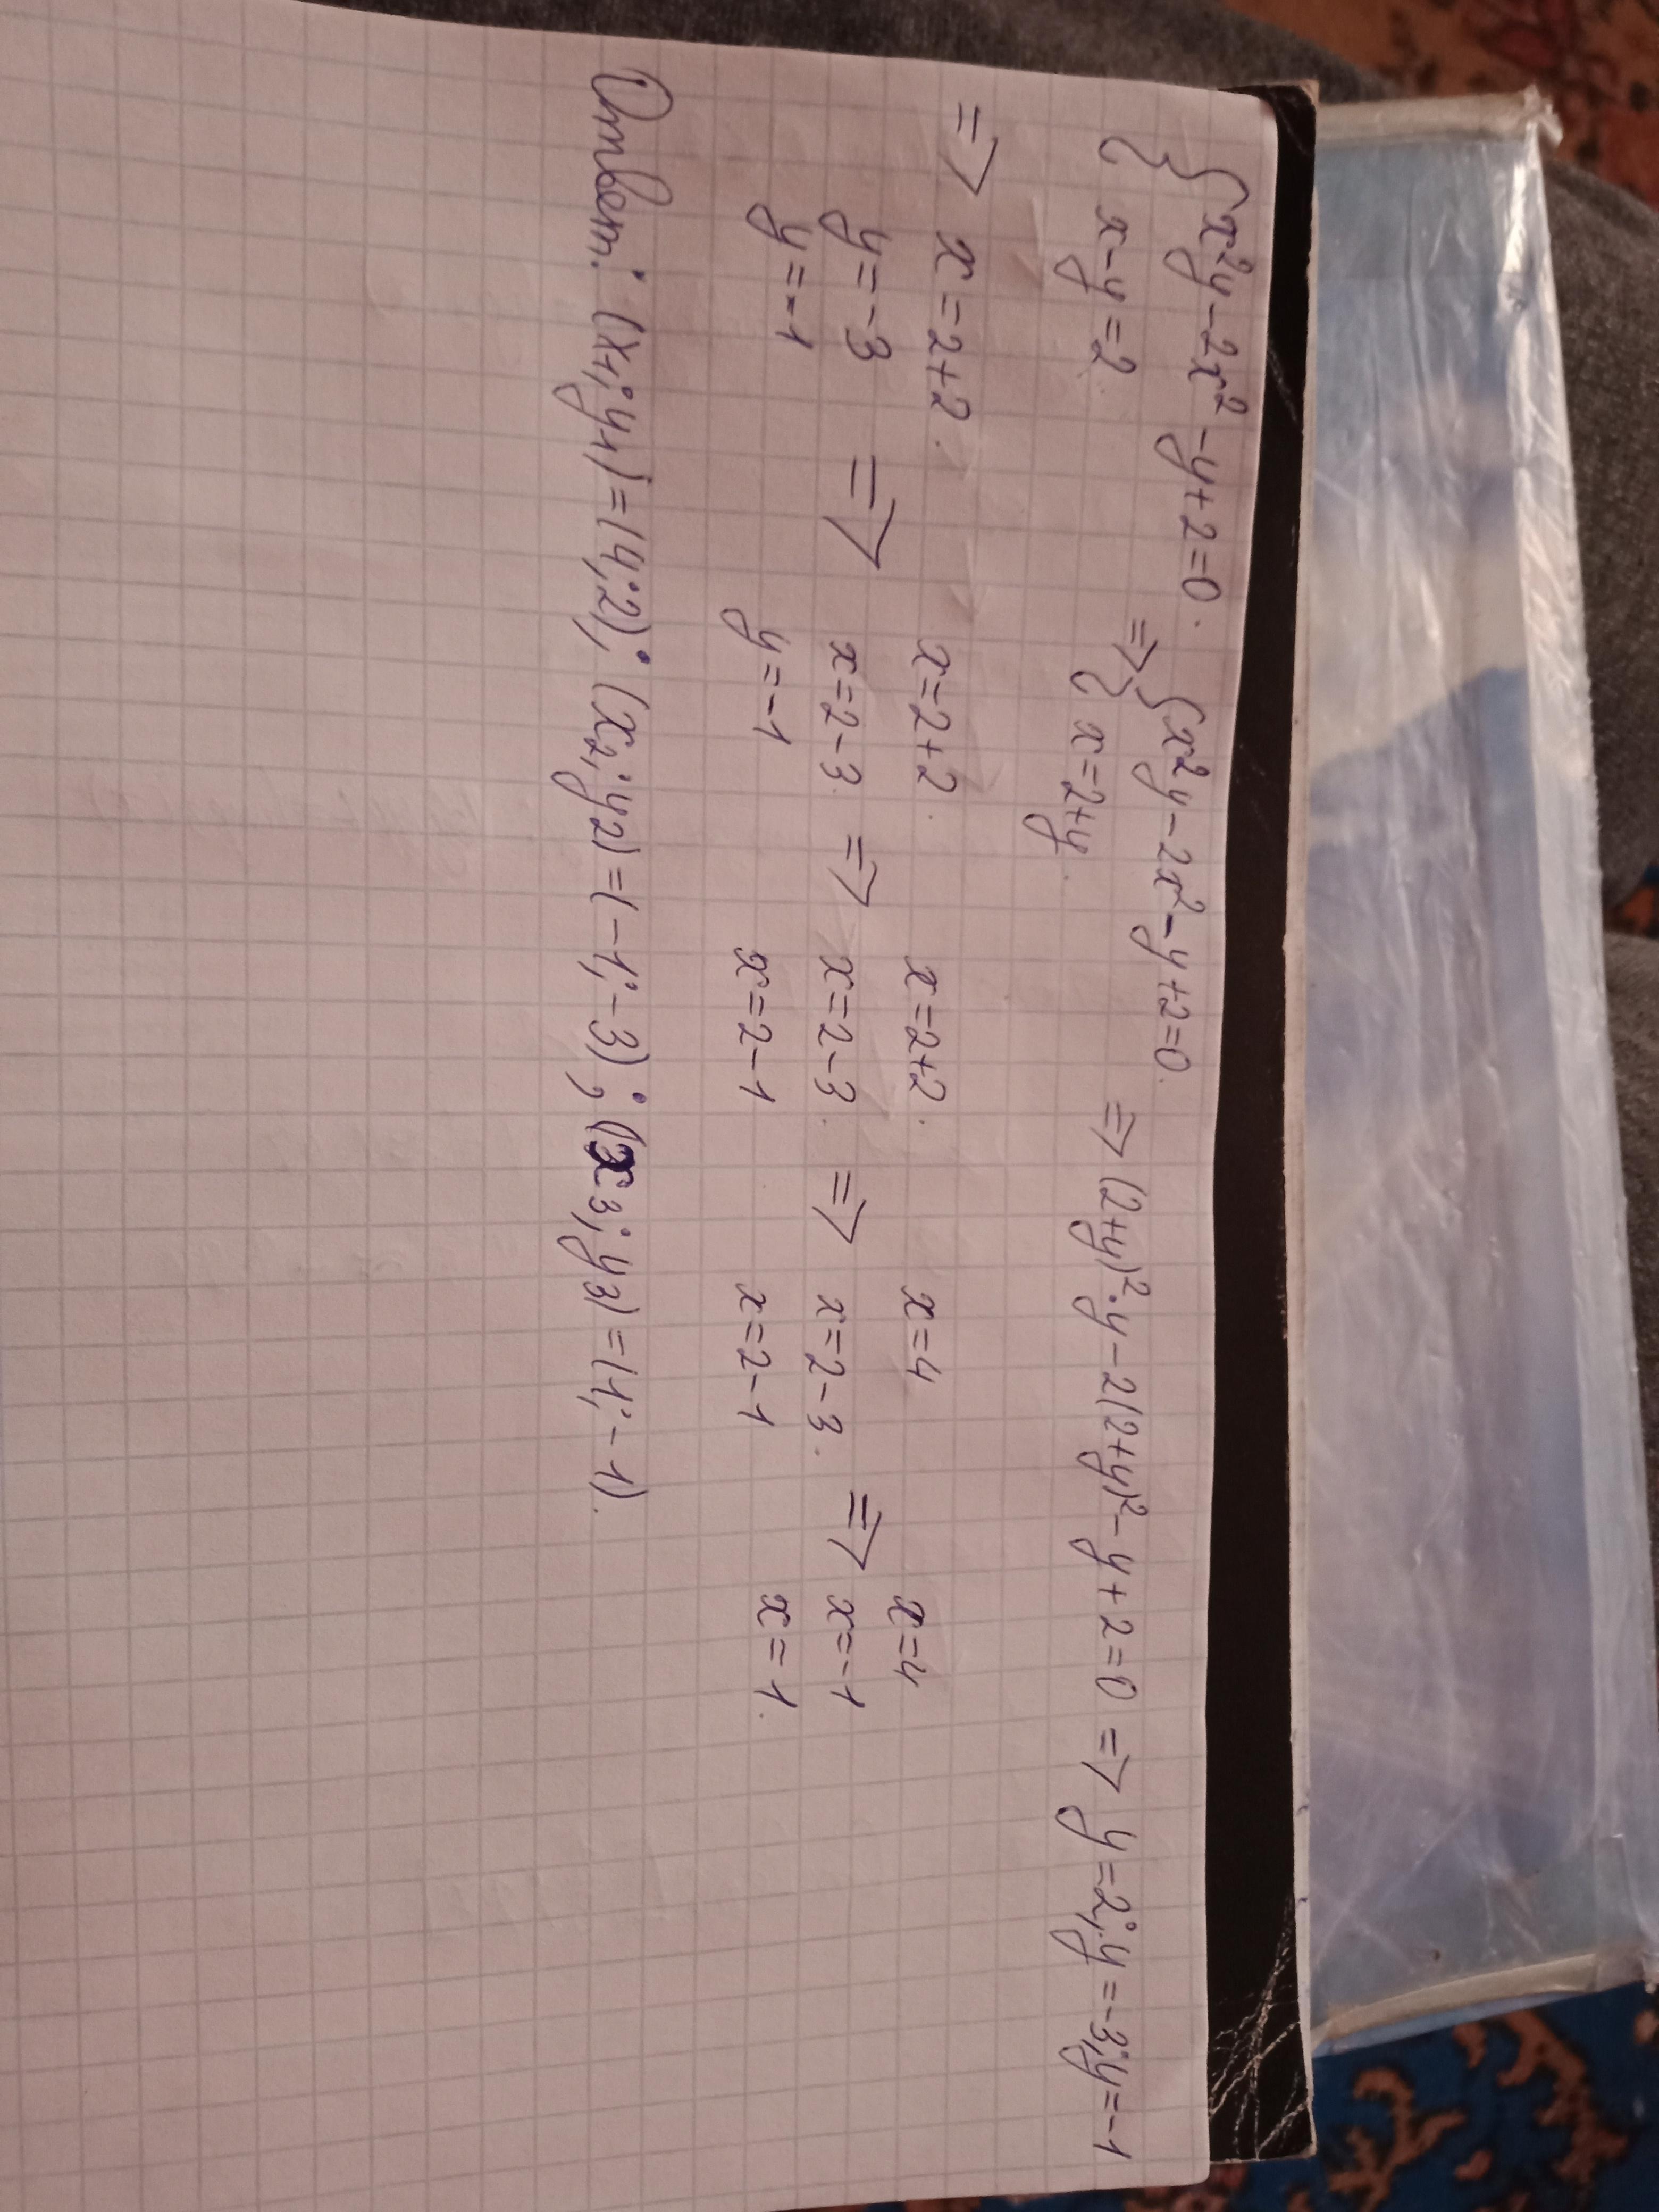 { x²y-2x²-y+2=0. => { x²y-2x²-y+2=0. => (2+y)²·y-2(2+y)²-y+2=0 => y=2; y=-3; y=-1
x-y=2. x=2+y.
=> x=2+2. x=2+2. x=2+2. x=4 x=4
y=-3 => x=2-3. => x=2-3. => x=2-3. => x=-1
y=-1 y=-1 x=2-1 x=2-1 x=1.
Ответ: (x₁; y₁)=(4; 2); (x₂; y₂)=(-1; -3); (x₃; y₃)=(1; -1).